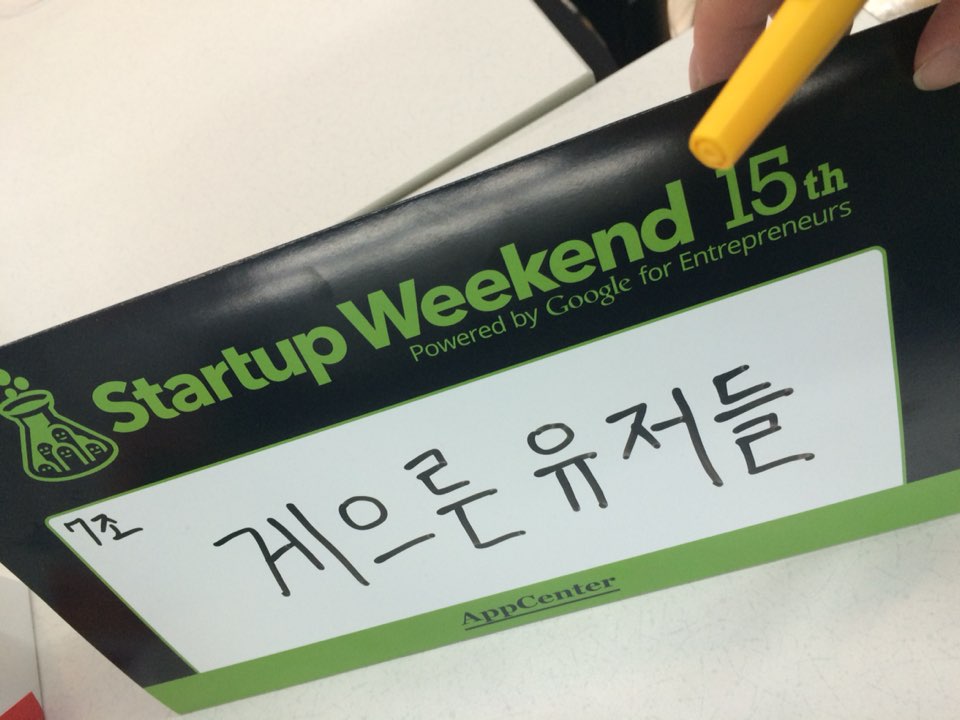 Startup Weekend 15th
Powered by Google for Entrepreneurs
7조
게으른 유저들
AppCenter